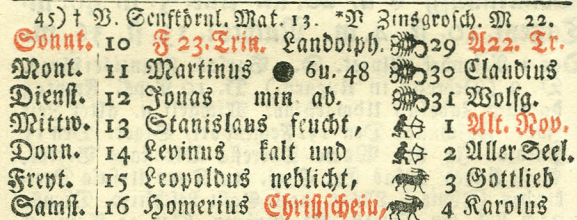 45) † V. Senfkörnl. Mat. 13. *V Zinsgrosch. M 22.
Sonnt. 10 F 23. Trin. Landolph. 29 A22. Tr.
Mont. 11 Martinus ● 6u. 48 30 Claudius
Dienst. 12 Jonas min ab. 31 Wolfg.
Mittw. 13 Stanislaus feucht, 1 Alt. Nov.
Donn. 14 Levinus kalt und 2 Aller Seel.
Freyt. 15 Leopoldus neblicht, 3 Gottlieb
Samst. 16 Homerius Christschein, 4 Karolus